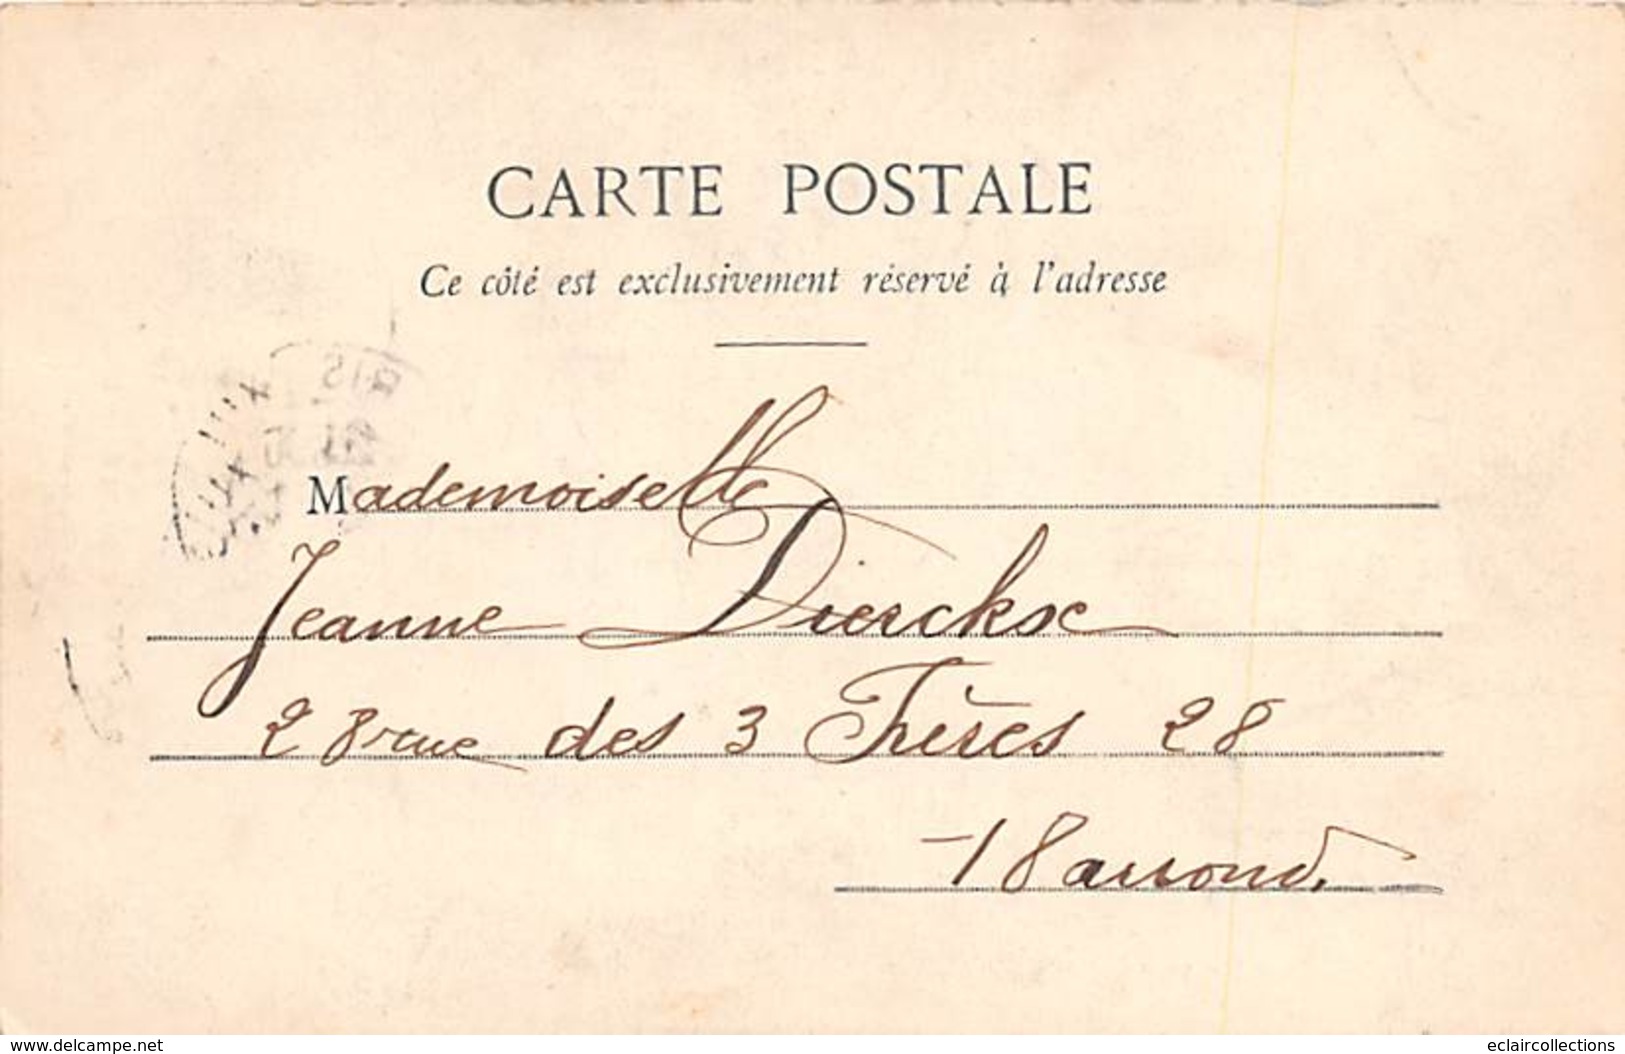 CARTE POSTALE
Ce côté est exclusivement réservé à l'adresse
Mademoiselle
Jeanne Dierckse
28 rue des 3 Frères 28
18 arrond.
www.delcampe.net
eclaircollections